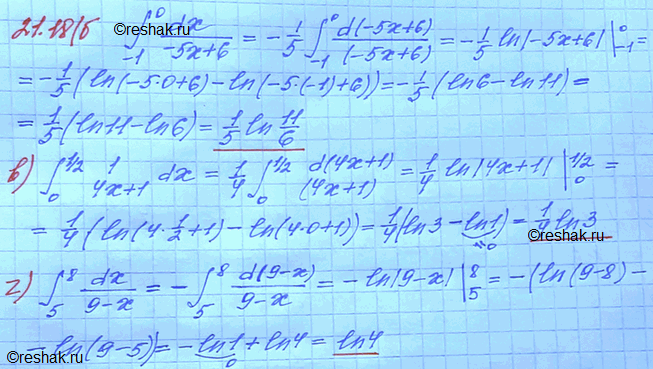 ©reshak.ru
21.18/б ∫₋₁⁰ dx/(-5x+6) = -1/5 ∫₋₁⁰ d(-5x+6)/(-5x+6) = -1/5 ln|-5x+6| |₋₁⁰ =
= -1/5 (ln(-5·0+6) - ln(-5·(-1)+6)) = -1/5 (ln6 - ln11) =
= 1/5 (ln11 - ln6) = 1/5 ln 11/6
в) ∫₀^1/2 1/4x+1 dx = 1/4 ∫₀^1/2 d(4x+1)/(4x+1) = 1/4 ln|4x+1| |₀^1/2 =
= 1/4 (ln(4·1/2+1) - ln(4·0+1)) = 1/4 (ln3 - ln1) = 1/4 ln3
=0
©reshak.ru
г) ∫₅⁸ dx/9-x = -∫₅⁸ d(9-x)/9-x = -ln|9-x| |₅⁸ = -(ln(9-8) -
- ln(9-5)) = -ln1 + ln4 = ln4
0
©reshak.ru